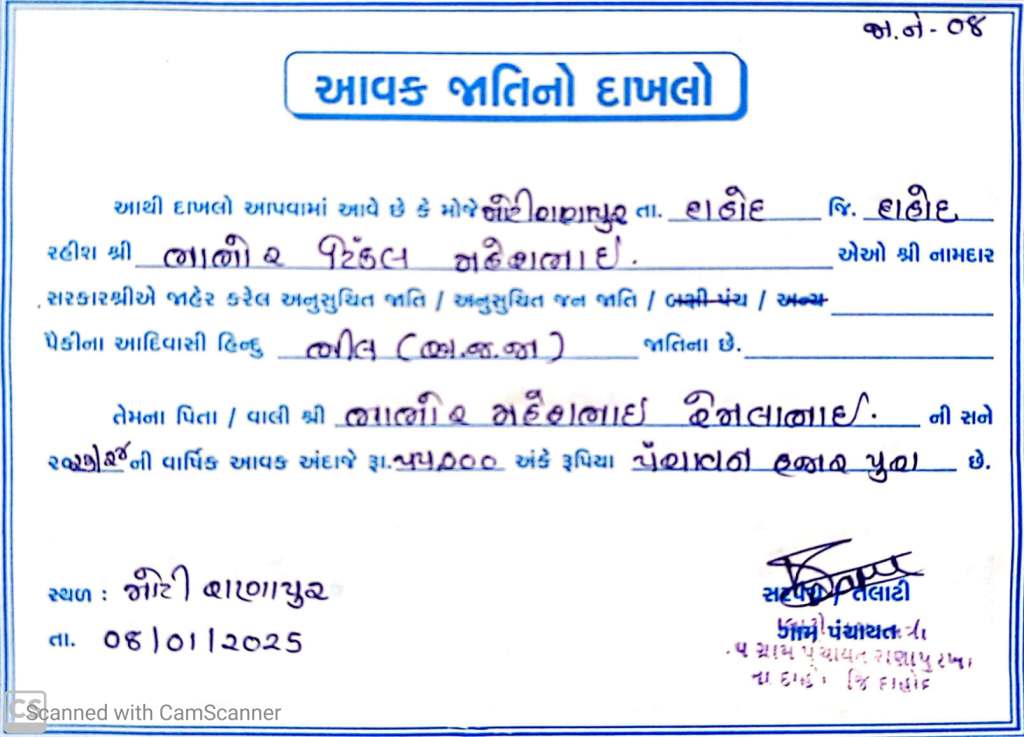 જા.નં - ૦૪
આવક જાતિનો દાખલો
આથી દાખલો આપવામાં આવે છે કે મોજે મોટીરાણાપુર તા. દાહોદ જિ. દાહોદ
રહીશ શ્રી ભાભોર ટિંકલ મહેશભાઇ. એઓ શ્રી નામદાર
સરકારશ્રીએ જાહેર કરેલ અનુસુચિત જાતિ / અનુસુચિત જન જાતિ / બક્ષી પંચ / અન્ય
પૈકીના આદિવાસી હિન્દુ ભીલ (અ.જ.જા) જાતિના છે.
તેમના પિતા / વાલી શ્રી ભાભોર મહેશભાઇ ની સને
૨૦૨૩/૨૪ ની વાર્ષિક આવક અંદાજે રૂા. ૫૫,૦૦૦ અંકે રૂપિયા પંચાવન હજાર પુરા છે.
સ્થળ : મોટી રાણાપુર
તા. 08/01/2025
સરપંચ / તલાટી
ગામ પંચાયત
ગ્રામ પંચાયત રાણાપુર
જિ દાહોદ
CS Scanned with CamScanner